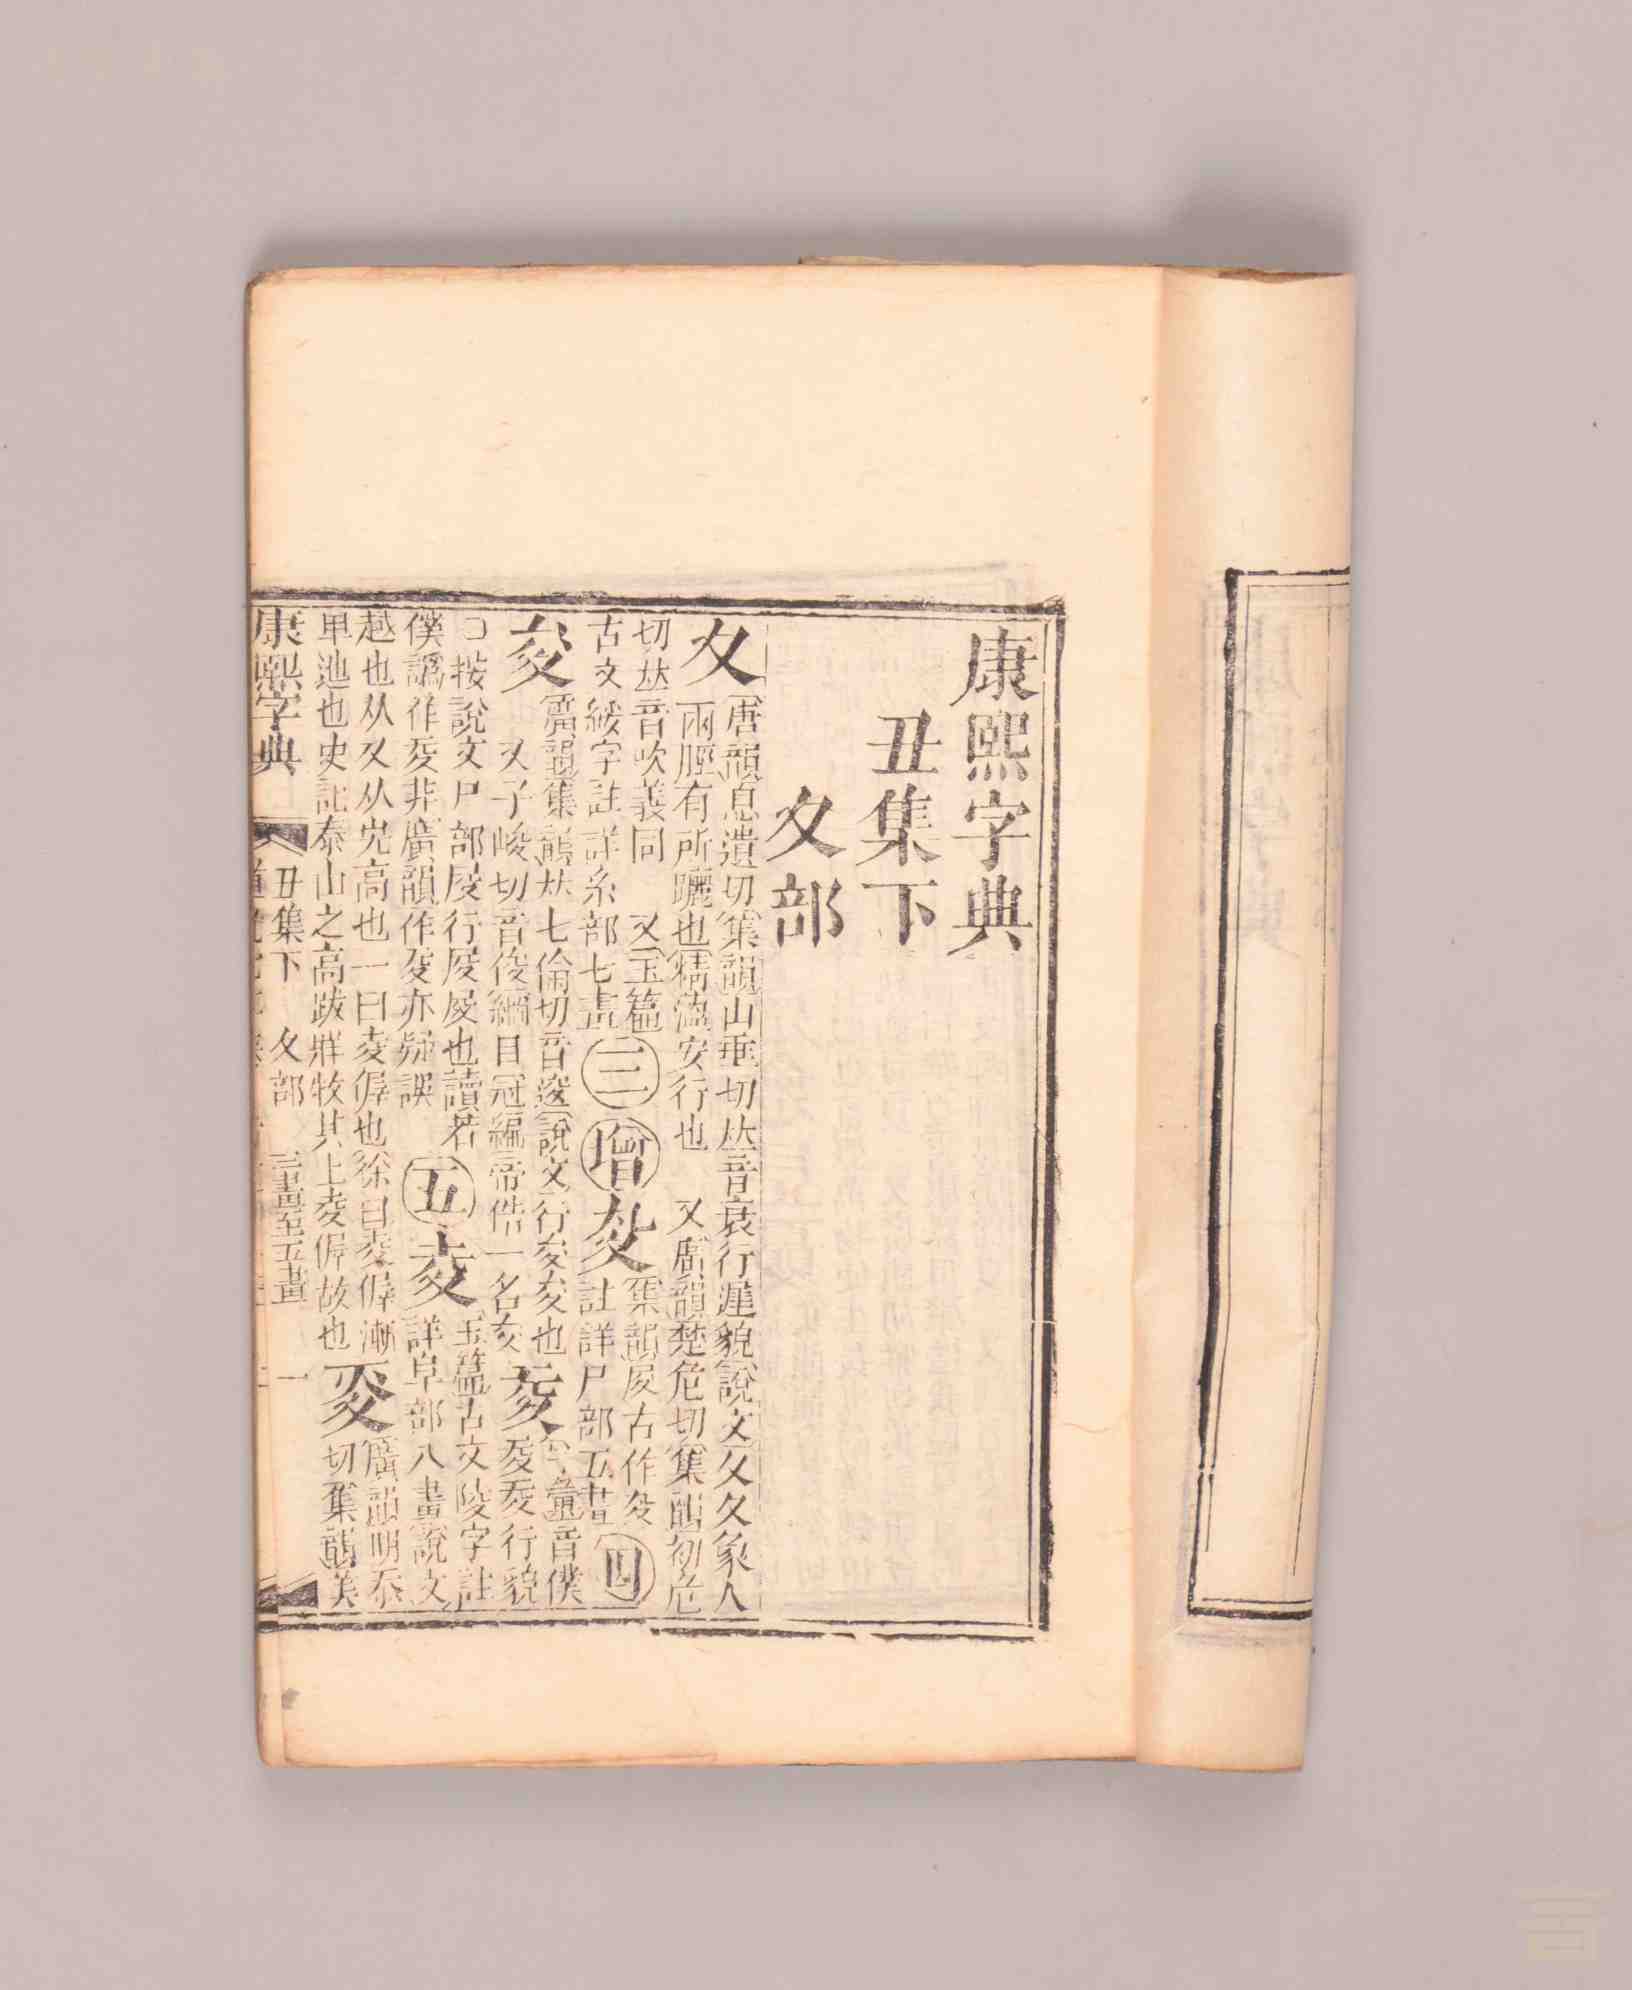 康熙字典
丑集下
夊部
夊
唐韻息遺切集韻山垂切𠀤音衰行遲貌說文行夊夊象人
兩脛有所躧也精薀安行也　又廣韻楚危切集韻初危
切𠀤音吹義同　又玉篇
古文綏字註詳糸部七畫
三
增
㚆
集韻𡰥古作㚆
註詳尸部五畫
四
夋
廣韻集韻𠀤七倫切音逡說文行夋夋也
又子峻切音俊綱目冠編帝俈一名夋
字彙音僕
㚄㚄行貌
按說文尸部𡰪行𡰪𡰪也讀若
僕譌作㚄非廣韻作㚄亦疑誤
五
夌
玉篇古文陵字註
詳阜部八畫說文
越也从夊从𡴆高也一曰夌㣪也徐曰夌㣪漸
𤰞迆也史記泰山之高跛牂牧其上夌㣪故也
廣韻明忝
切集韻美
康熙字典
丑集下　夊部　三畫至五畫　一